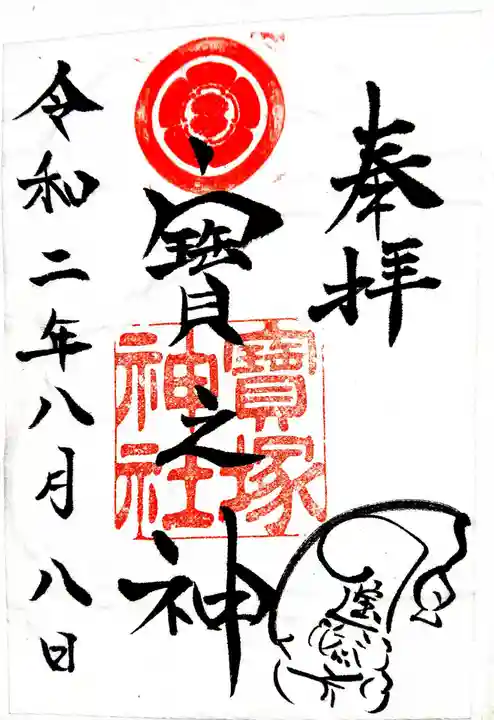 奉拝
寳之神
寳塚
神社
令和二年八月八日